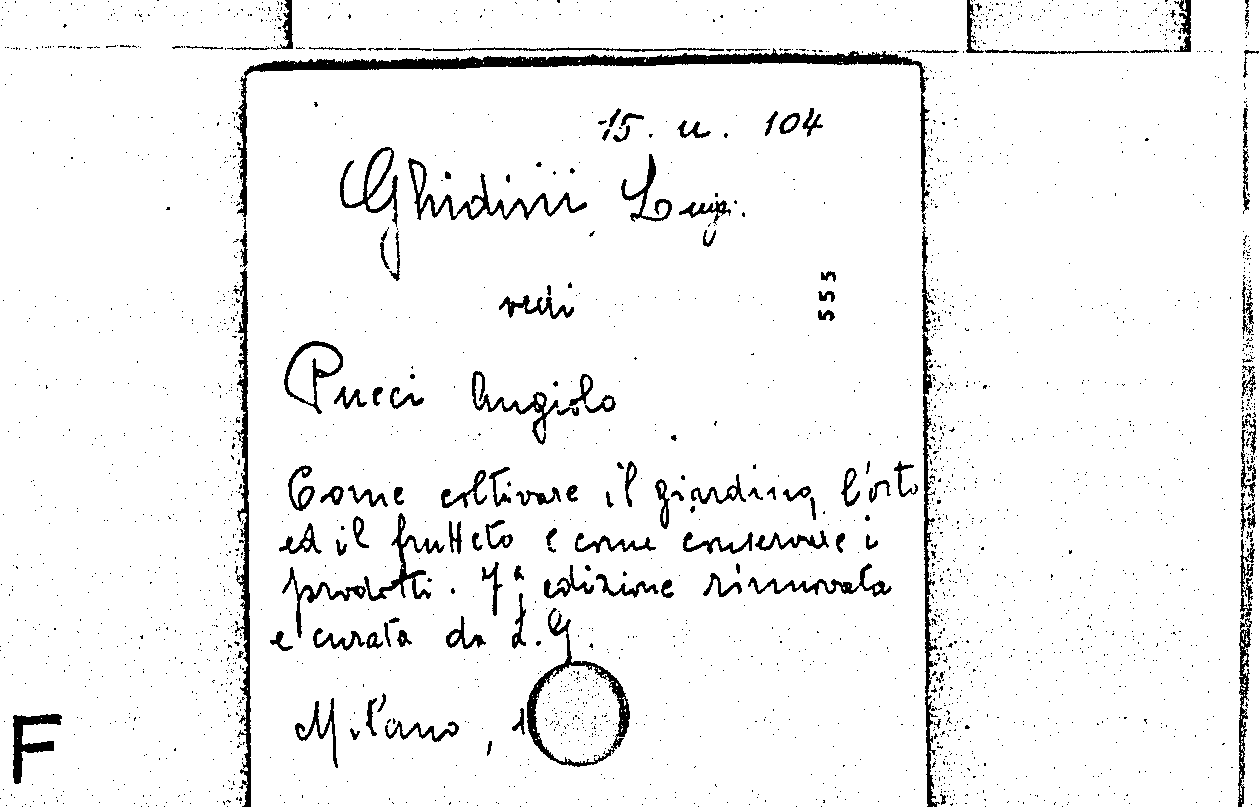 15. u. 104
Ghidini Luigi.
vedi
555
Pucci Angiolo
Come coltivare il giardino, l'orto
ed il frutteto e come conservare i
prodotti. 7ª edizione rinnovata
e curata da L.G.
Milano, 1
F